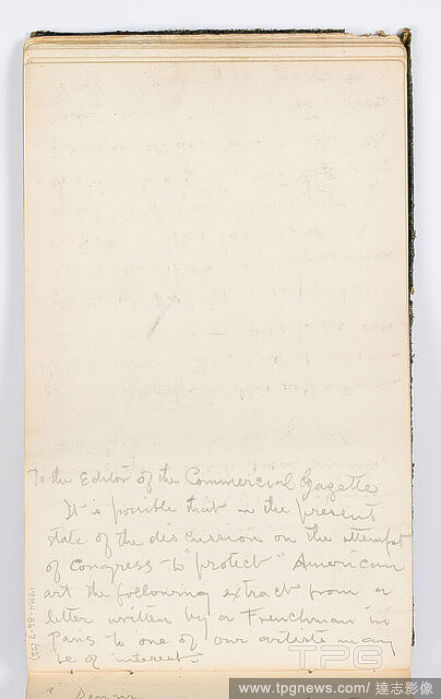 To the Editor of the Commercial Gazette
It is possible that in the present
state of the discussion on the attempt
of Congress to "protect" American
art the following extract from a
letter written by a Frenchman in
Paris to one of our artists may
be of interest:
1984-86-7 (52)
TPG
www.tpgnews.com/達志影像